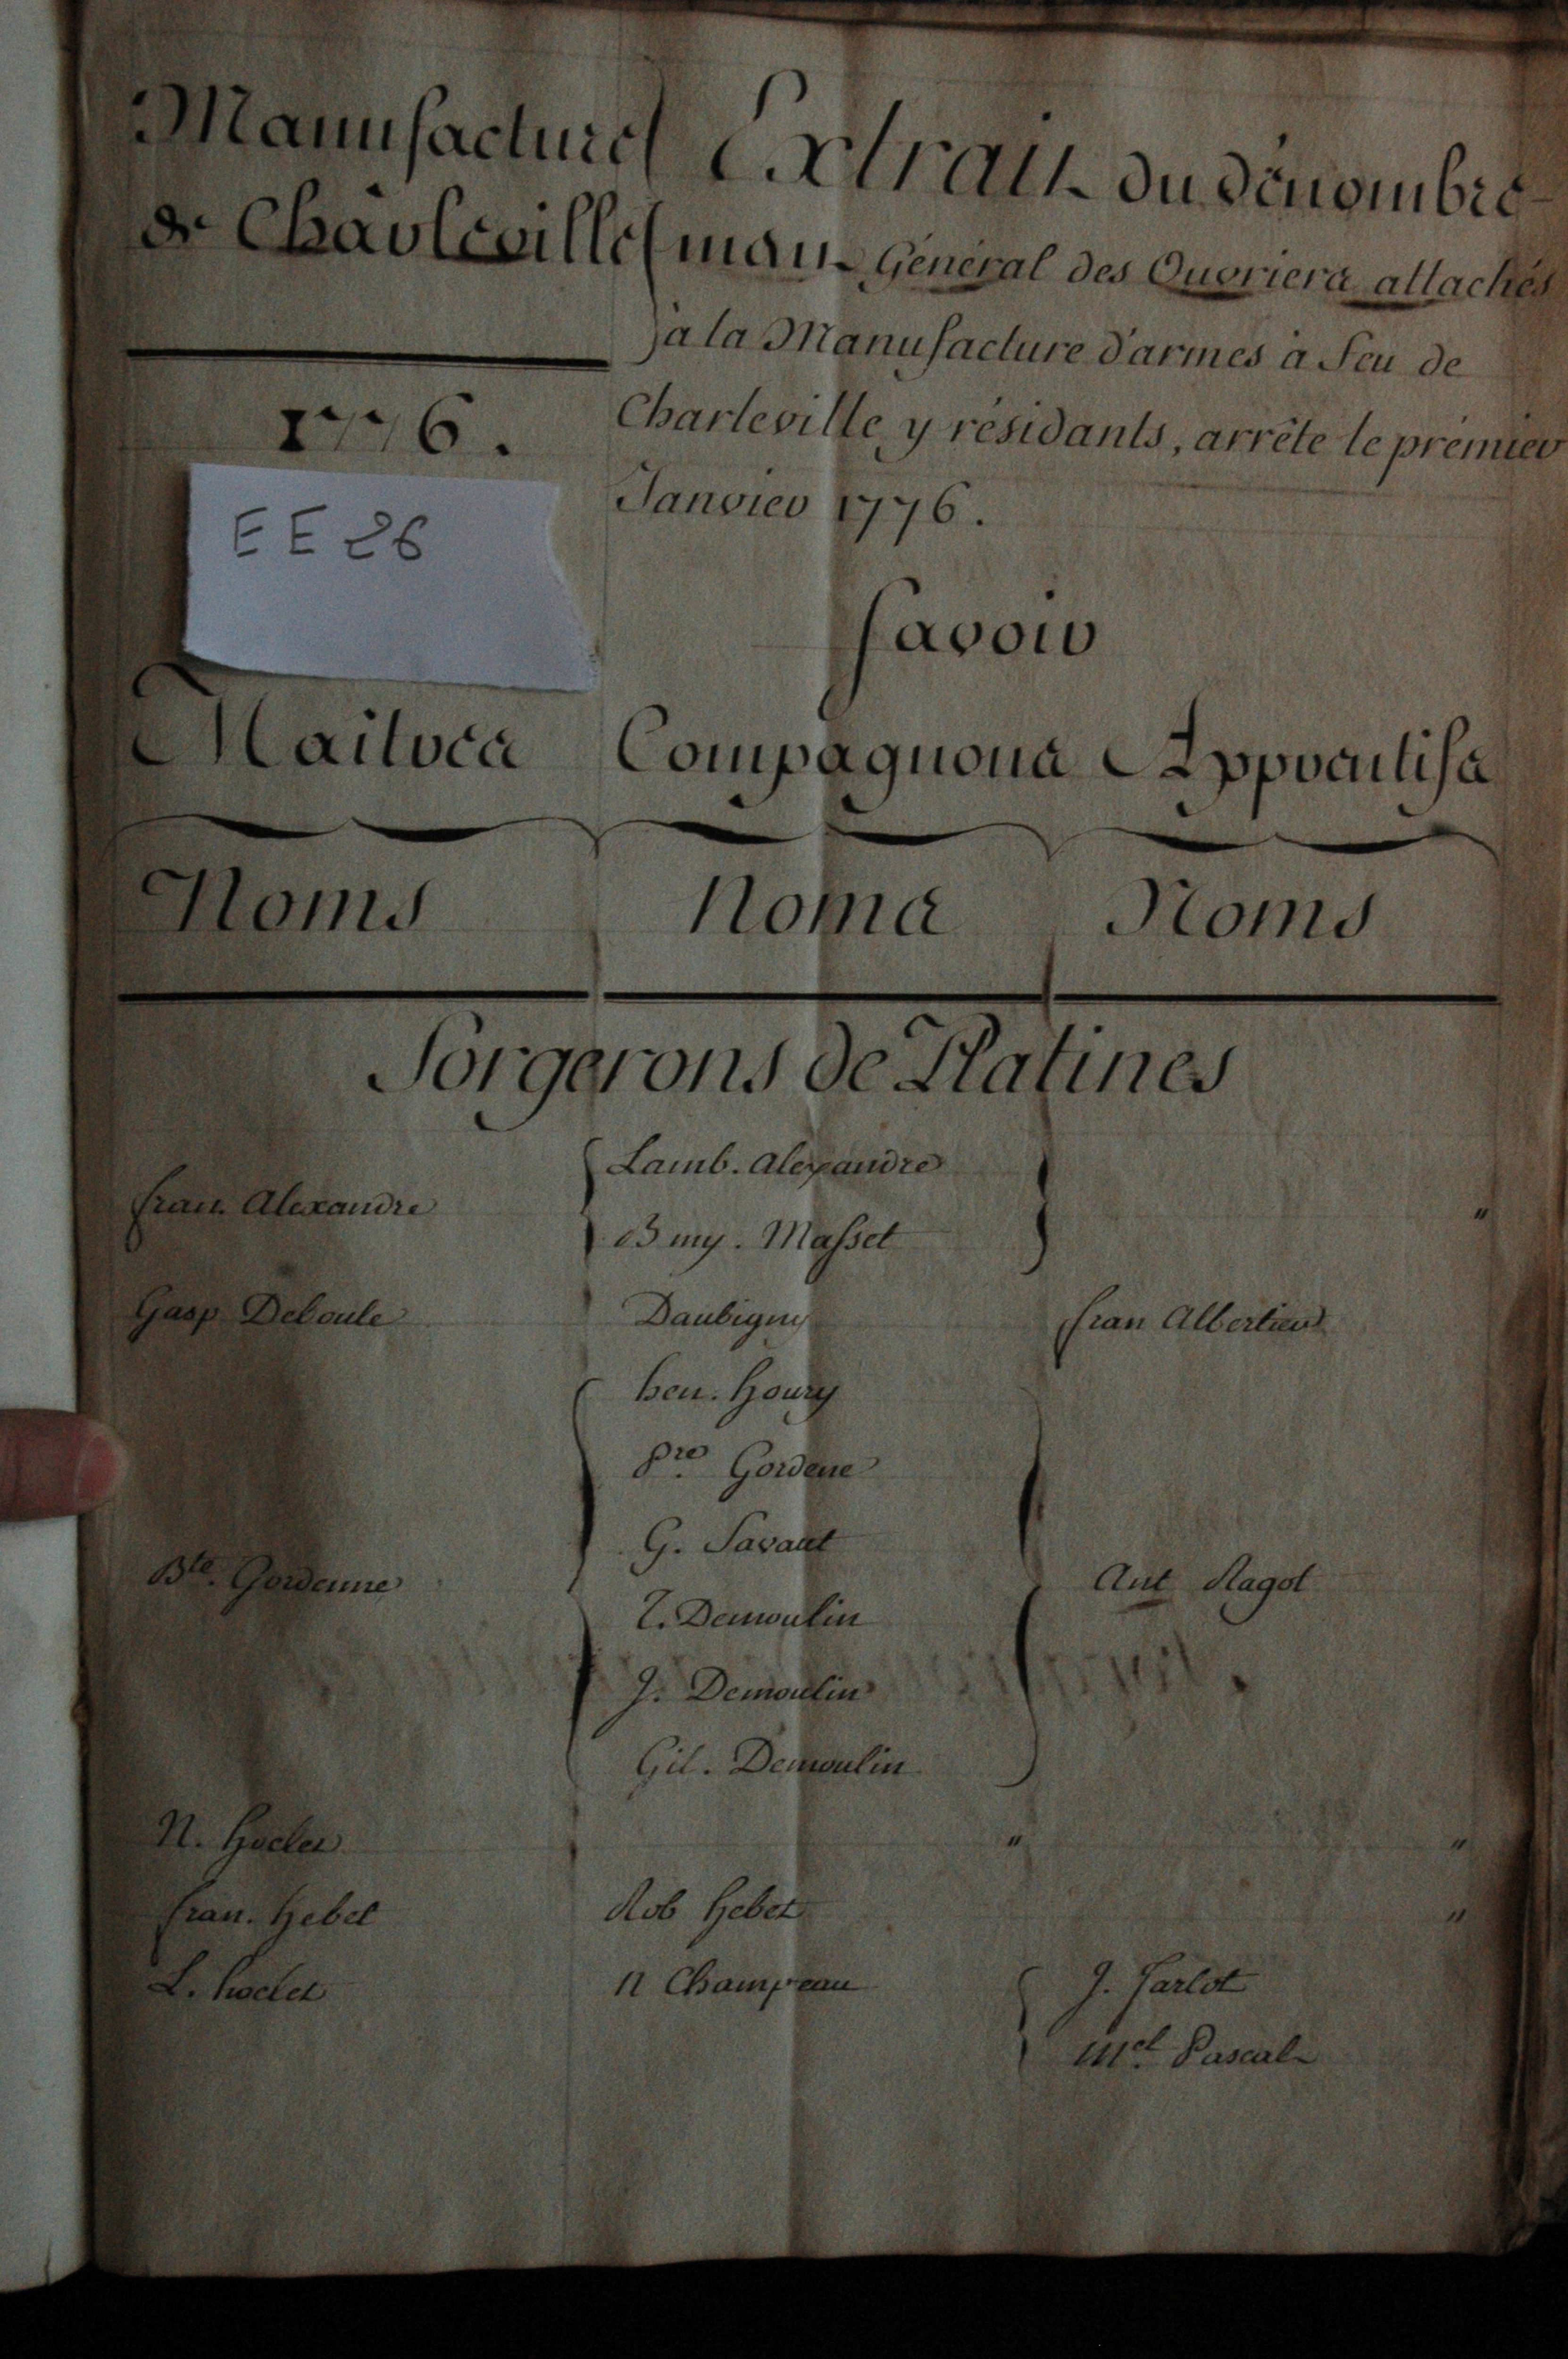 Manufacture
de Charleville
1776.
EE 26
Extrait du dénombre-
ment Général des Ouvriers attachés
a la Manufacture d'armes à feu de
Charleville y résidants, arrête le prémier
Janvier 1776.
Savoir
Maitres Compagnons Apprentifs
Noms Noms Noms
Forgerons de Platines
Lamb. Alexandre
fran. Alexandre "
Masset
Gasp Deboule Daubigny fran Albertin
hen. houry
Pre. Gordene
G. Savart
Bte. Gordenne Ant Ragot
T. Demoulin
J. Demoulin
Gil. Demoulin
N. " "
fran. hebel Rob hebel "
L. n Champeau J. Jarlot
Mel. Pascal